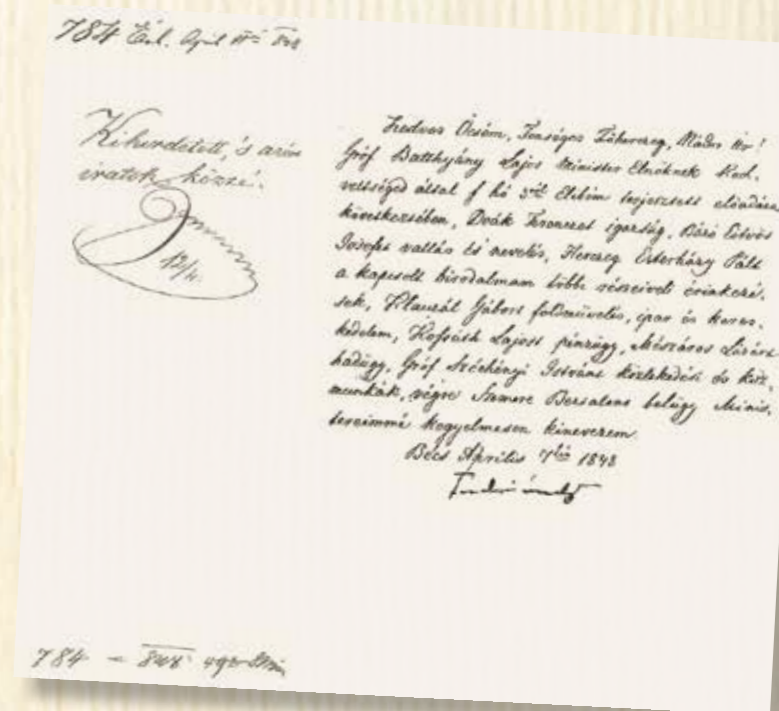 784 Eln. April 11én 848
Kihirdetett, s azon
iratok közzé.
12/4.
Kedves Öcsém, Fenséges Főherczeg, Nádor Úr!
Gróf Batthyány Lajos Minister Elnöknek Ked-
veltséged által f hó 3ról Elébem terjesztett előadása
következésében, Deák Ferenczet igazság, Báró Eötvös
Josefet vallás és nevelés, Herczeg Esterházy Pált
a kapcsolt birodalmam többi részeiveli érintkezé-
sek, Klauzál Gábort földmüvelés, ipar és keres-
kedelem, Kossuth Lajost pénzügy, Mészáros Lázárt
hadügy, Gróf Széchényi Istvánt közlekedési és köz-
munkák, végre Szemere Bertalant belügy Minis-
tereimmé kegyelmesen kinevezem.
Bécs Április 7én 1848
784 – 848